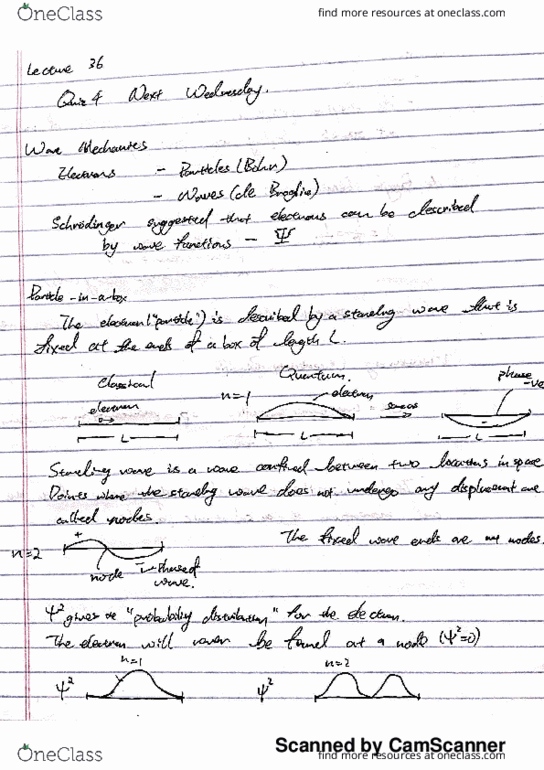 OneClass
find more resources at oneclass.com
Lecture 36
Quiz 4 Next Wednesday.
Wave Mechanics
Electrons - Particles (Bohr)
- Waves (de Broglie)
Schrödinger suggested that electrons can be described
by wave functions - Ψ
Particle-in-a-box
The electron ("particle") is described by a standing wave that is
fixed at the ends of a box of length L.
Classical Quantum phase
electron n=1 electron -ve
L L L
Standing wave is a wave confined between two locations in space
Points where the standing wave does not undergo any displacement are
called nodes.
The fixed wave ends are not nodes.
n=2 + -
node wave.
Ψ² gives the "probability distribution" for the electron.
The electron will never be found at a node (Ψ²=0)
n=1 n=2
Ψ² Ψ²
Scanned by CamScanner
OneClass
find more resources at oneclass.com